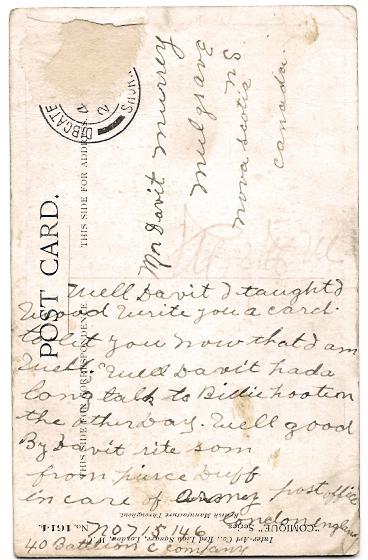 POST CARD.
THIS SIDE FOR CORRESPONDENCE
THIS SIDE FOR ADDR
DIBGATE
SHOR
Mr Davit Murrey
Mulgrave
Nova Scotia
Canada
Well Davit I taught I
wood write you a card.
to let you now that I am
Well. Well Davit had a
long talk to Bidie hooton
the other Day. Well good
By Davit rite som
from pierce Duff
in care of army post office
London england
No 715146
40 Battion C company
"COMIQUE" Series
Inter-Art Co., Red Lion Square, London, W.C.
British Manufacture Throughout
No. 1614.